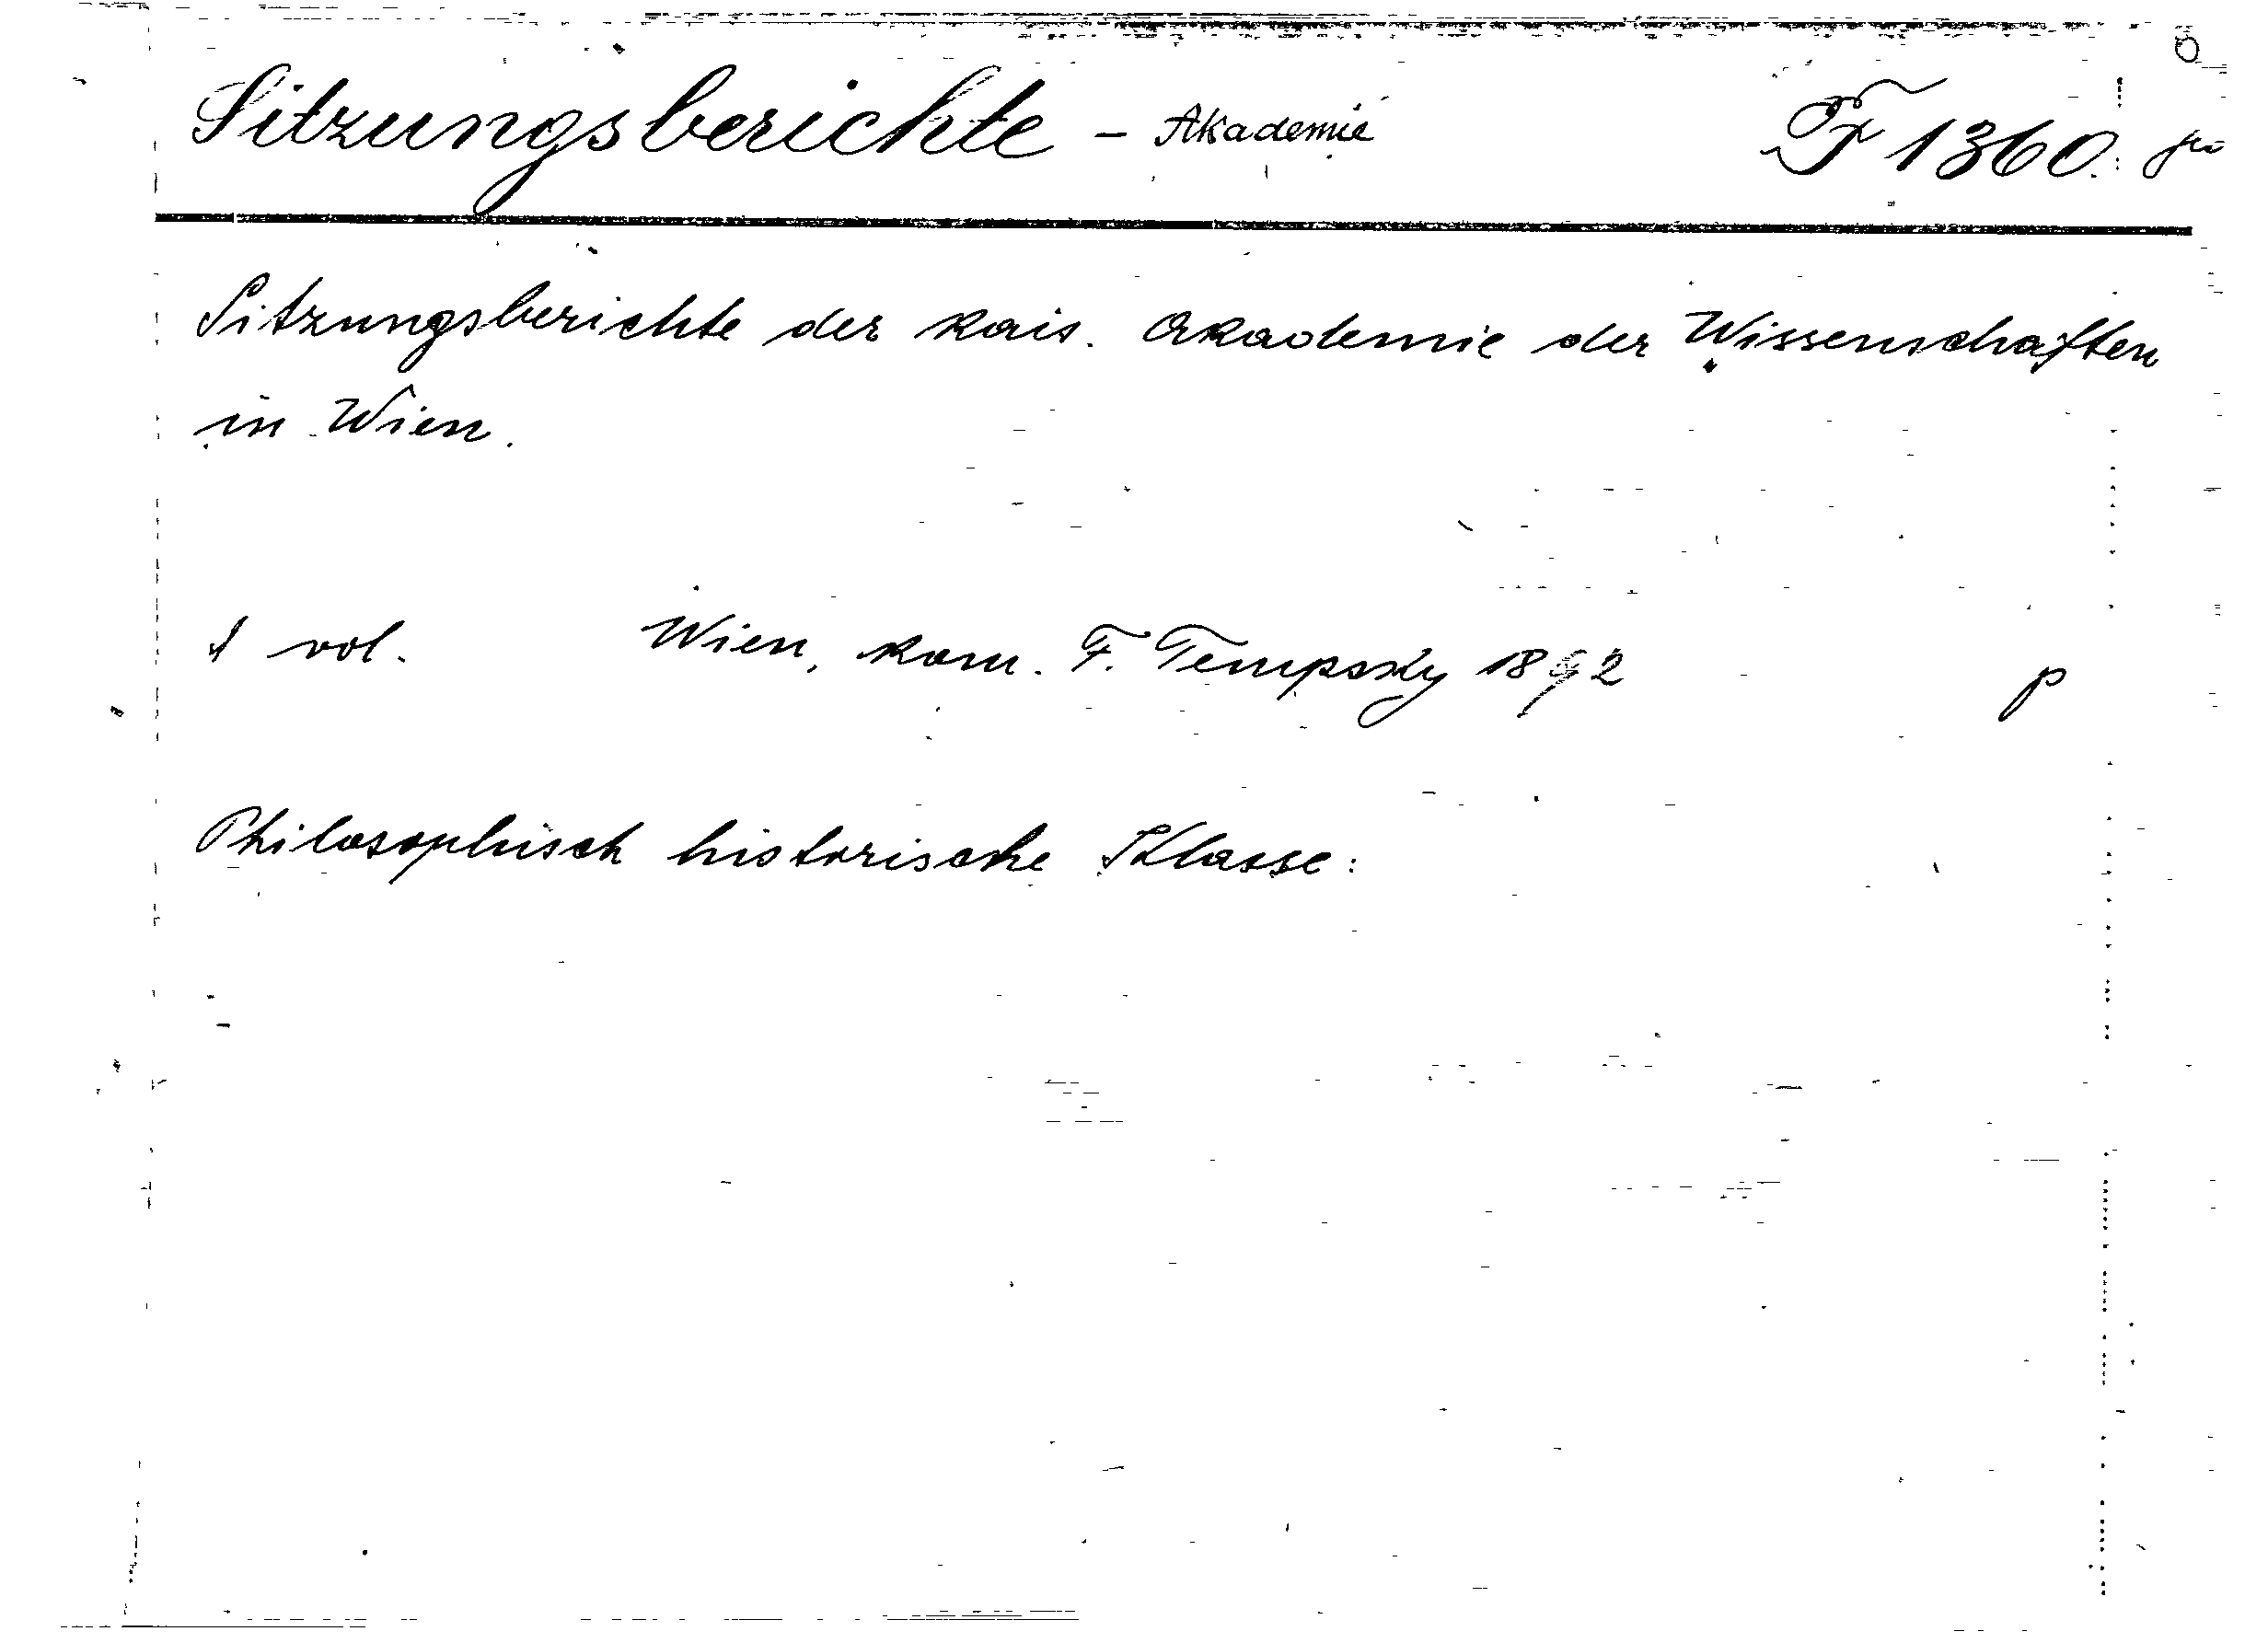 Sitzungsberichte - Akademie F 1360.
Sitzungsberichte der kais. Akademie der Wissenschaften
in Wien.
1 vol. Wien, kom. F. Tempsky 1892 p
Philosophisch historische Klasse: